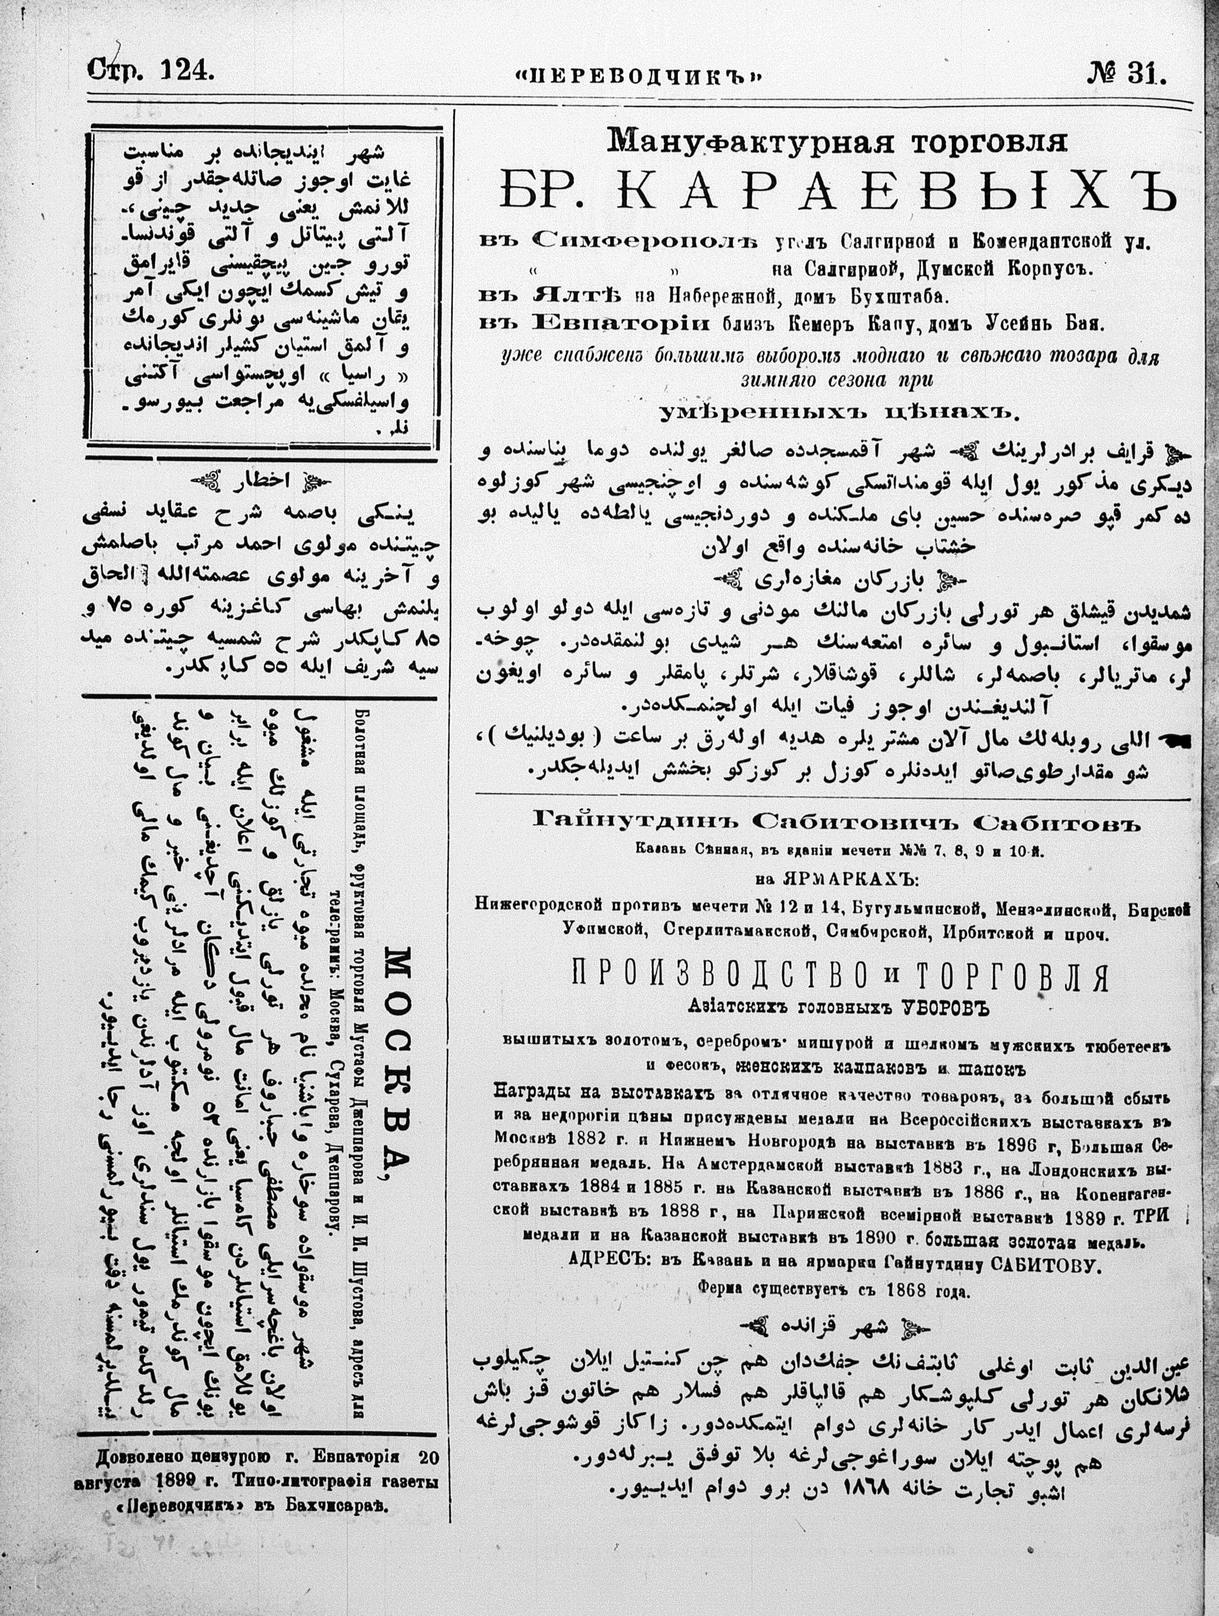 Стр. 124.
«ПЕРЕВОДЧИКЪ»
№ 31.
شهر اینديجانده بر مناسبت
غایت اوجوز صاتله‌جقدر از قو
للانمش یعنی جدید چینی،
آلتی پیتاتل و آلتی قوندنسا-
تورو جین پیچقیسنی قایرامق
و تیش کسمك ایچون ایکی آمر
یقان ماشینه‌سی بونلری کورمك
و آلمق استیان کشیلر اندیجانده
« راسیا » اوپچستواسی آکتنی
واسیلفسکی‌یه مراجعت بیورسو-
نلر .
اخطار
ینـکی باصمه شرح عقاید نسفی
چیتنده مولوی احمد مرتب باصلمش
و آخرینه مولوی عصمته‌الله الحاق
یلنمش بهاسی کاغزینه کوره ۷۵ و
۸۵ کاپکدر شرح شمسیه چیتنده مید
سیه شریف ایله ۵۵ کاپکدر.
МОСКВА,
Болотная площадь, фруктовая торговля Мустафы Джеппарова и И. И. Шустова, адресъ для
телеграммъ: Москва, Сухарева, Джеппарову.
شهر موسقواده سوخاره واباشنیا نام محلده میوه تجارتی ایله مشغول
اولان باغچه‌سرایلی مصطفی جباروف هر تورلی یازلق و کوزلك میوه
یوللامق استیانلردن کامسیا یعنی امانت مال قبول ایتدیکنی اعلان ایله برابر
بونك ایچون موسقوا بازارنده ۵۲ نومرولی دکان آچدیغنی بیان و
مال کوندرمك استیانلر اولجه مکتوب ایله مرادلرینی خبر و مال کوند
رلدکده تیمور یول سندلری اوز آدلرندن یازدیروب کیمك مالی اولدیغی
بیلدیرلمسنه دقت بیورلمسنی رجا ایدییور.
Дозволено цензурою г. Евпаторія 20
августа 1899 г. Типо-литографія газеты
«Переводчикъ» въ Бахчисараѣ.
Мануфактурная торговля
БР. КАРАЕВЫХЪ
въ Симферополѣ уголъ Салгирной и Комендантской ул.
« » на Салгирной, Думской Корпусъ.
въ Ялтѣ на Набережной, домъ Бухштаба.
въ Евпаторіи близъ Кемеръ Капу, домъ Усейнъ Бая.
уже снабженъ большимъ выборомъ моднаго и свѣжаго товара для
зимняго сезона при
умѣренныхъ цѣнахъ.
قرایف برادرلرینك شهر آقمسجدده صالغر یولنده دوما بناسنده و
دیکری مذکور یول ایله قومنداتسکی کوشه‌سنده و اوچنجیسی شهر کوزلوه
ده کمر قپو صره‌سنده حسین بای ملکنده و دوردنجیسی یالطه‌ده یالیده بو
خشتاب خانه‌سنده واقع اولان
بازرکان مغازه‌لری
شمدیدن قیشلق هر تورلی بازرکان مالنك مودنی و تازه‌سی ایله دولو اولوب
موسقوا، استانبول و سائره امتعه‌سنك هر شیدی بولنمقده‌در. چوخه-
لر، ماتریالر، باصمه‌لر، شاللر، قوشاقلار، شرتلر، پامقلر و سائره اویغون
آلندیغندن اوجوز فیات ایله اولچنمکده‌در.
اللی روبله‌لك مال آلان مشتریلره هدیه اوله‌رق بر ساعت (بودیلنیك)،
شو مقدار طوی‌صاتو ایده‌نلره کوزل بر کوزکو بخشش ایدیله‌جکدر.
Гайнутдинъ Сабитовичъ Сабитовъ
Казань Сѣнная, въ зданіи мечети №№ 7, 8, 9 и 10-й.
на ЯРМАРКАХЪ:
Нижегородской противъ мечети № 12 и 14, Бугульминской, Мензелинской, Бирской
Уфимской, Стерлитамакской, Симбирской, Ирбитской и проч.
ПРОИЗВОДСТВО и ТОРГОВЛЯ
Азіатскихъ головныхъ УБОРОВЪ
вышитыхъ золотомъ, серебромъ мишурой и шелкомъ мужскихъ тюбетеекъ
и фесокъ, женскихъ калпаковъ и шапокъ
Награды на выставкахъ за отличное качество товаровъ, за большой сбытъ
и за недорогіи цѣны присуждены медали на Всероссійскихъ выставкахъ въ
Москвѣ 1882 г. и Нижнемъ Новгородѣ на выставкѣ въ 1896 г, Большая Се-
ребрянная медаль. На Амстердамской выставкѣ 1883 г., на Лондонскихъ вы-
ставкахъ 1884 и 1885 г. на Казанской выставкѣ въ 1886 г., на Копенгаген-
ской выставкѣ въ 1888 г, на Парижской всемірной выставкѣ 1889 г. ТРИ
медали и на Казанской выставкѣ въ 1890 г. большая золотая медаль.
АДРЕСЪ: въ Казань и на ярмарки Гайнутдину САБИТОВУ.
Фирма существуетъ съ 1868 года.
شهر قزانده
عین‌الدین ثابت اوغلی ثابتف‌نك جفك‌دان هم چن کنتیل ایلان چکیلوب
شلانکان هر تورلی کلپوشکار هم قالپاقلر هم فسلار هم خاتون قز باش
فرسه‌لری اعمال ایدر کار خانه‌لری دوام ایتمکده‌دور. زاکاز قوشوجی‌لرغه
هم پوچته ایلان سوراغوجی‌لرغه بلا توفق یبرله‌دور.
اشبو تجارت خانه ۱۸٦۸ دن برو دوام ایدییور.